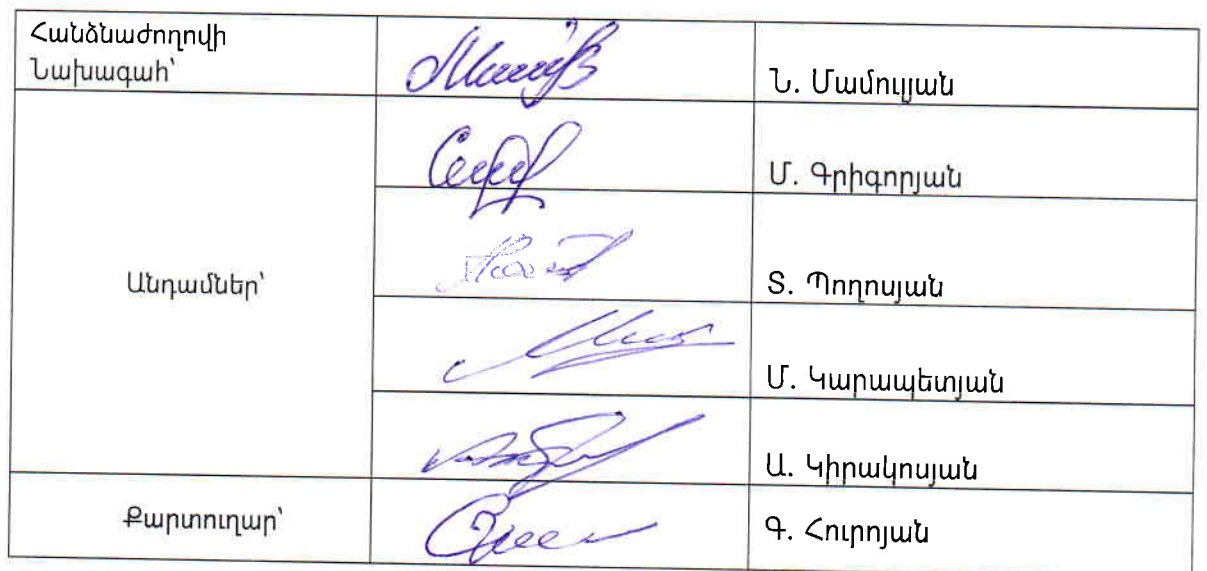 Հանձնաժողովի
Նախագահ՝
Ն. Մամուլյան
Մ. Գրիգորյան
Անդամներ՝
Տ. Պողոսյան
Մ. Կարապետյան
Ա. Կիրակոսյան
Քարտուղար՝
Գ. Հուրոյան